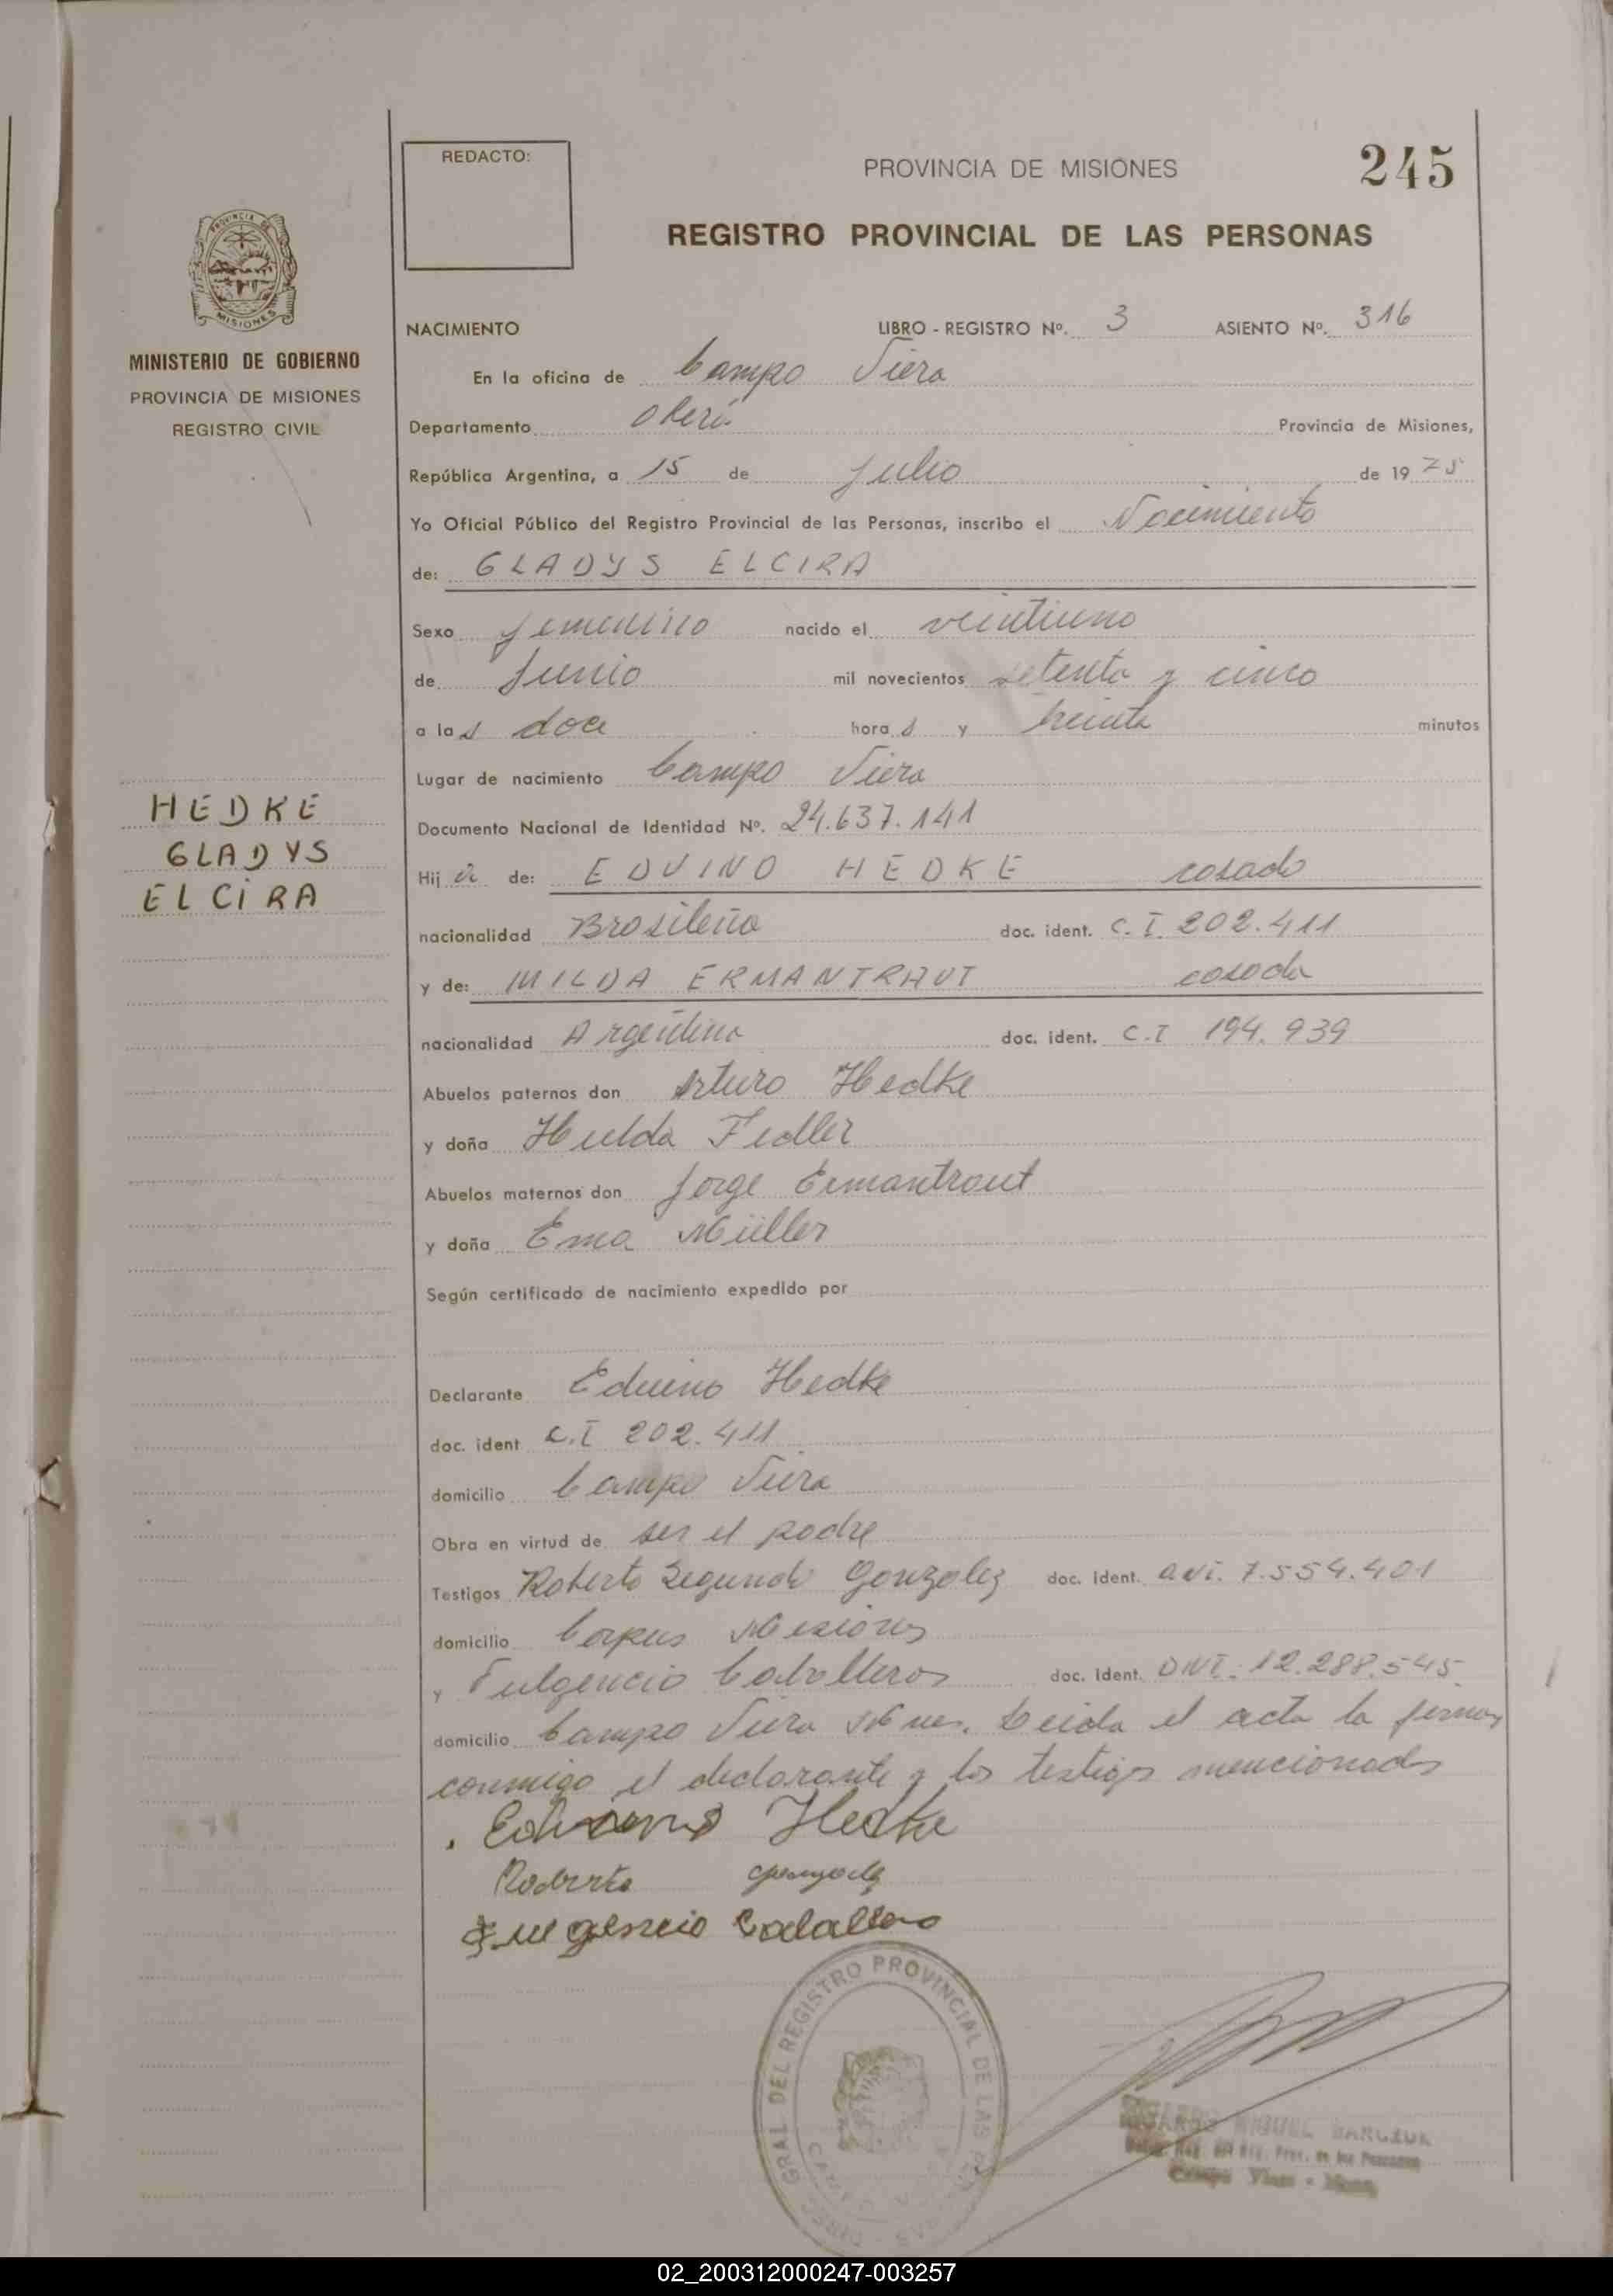 REDACTO:
PROVINCIA DE MISIONES
245
REGISTRO PROVINCIAL DE LAS PERSONAS
PROVINCIA DE
MISIONES
MINISTERIO DE GOBIERNO
PROVINCIA DE MISIONES
REGISTRO CIVIL
NACIMIENTO LIBRO - REGISTRO Nº. 3 ASIENTO Nº. 316
En la oficina de Campo Viera
Departamento Oberá Provincia de Misiones,
República Argentina, a 15 de Julio de 19 75
Yo Oficial Público del Registro Provincial de las Personas, inscribo el Nacimiento
de: GLADYS ELCIRA
Sexo femenino nacido el veintiuno
de Junio mil novecientos setenta y cinco
a las doce horas y treinta minutos
Lugar de nacimiento Campo Viera
Documento Nacional de Identidad Nº. 24.637.141
HEDKE
GLADYS
ELCIRA
Hija de: EDVINO HEDKE casado
nacionalidad Brasileña doc. ident. C.I. 202.411
y de: MILDA ERMANTRAUT casada
nacionalidad Argentina doc. ident. C.I 194.939
Abuelos paternos don Arturo Hedke
y doña Hulda Fedler
Abuelos maternos don Jorge Ermantraut
y doña Ema Müller
Según certificado de nacimiento expedido por
Declarante Edvino Hedke
doc. ident C.I 202.411
domicilio Campo Viera
Obra en virtud de ser el padre
Testigos Roberto Segundo Gonzalez doc. ident. DNI. 7.554.401
domicilio Corpus Misiones
y Fulgencio Caballero doc. ident. DNI. 12.288.545
domicilio Campo Viera Mnes. Leida el acta la firman
conmigo el declarante y los testigos mencionados
Edvino Hedke
Roberto Gonzalez
Fulgencio Caballero
GRAL DEL REGISTRO PROVINCIAL DE LAS
MIGUEL
Campo Viera -
02_200312000247-003257